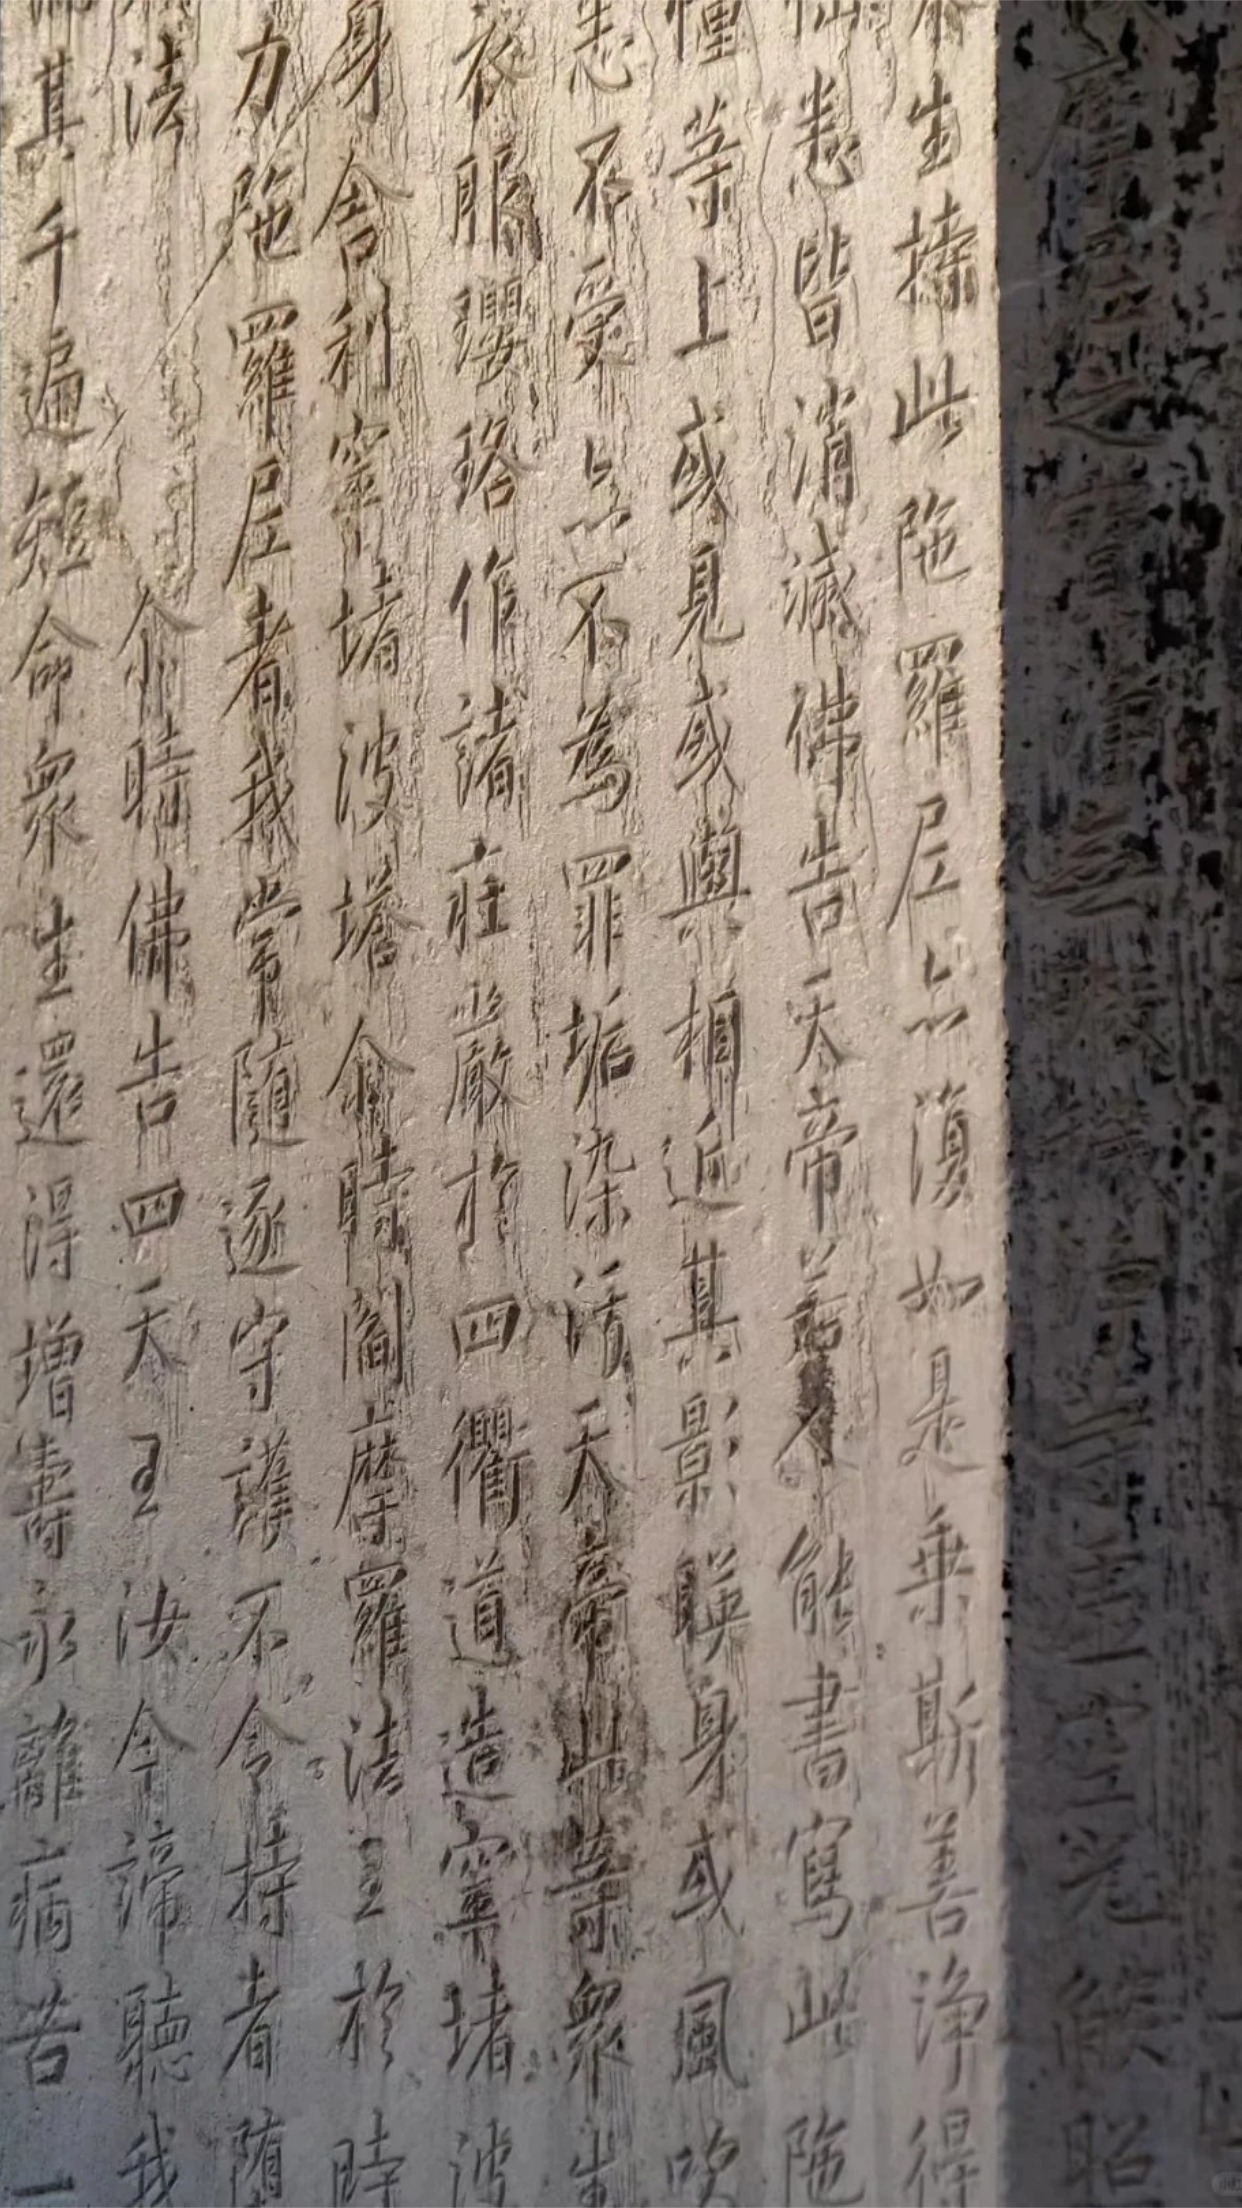 摩尼之寶清浄無瑕穢浄等虛空光焰昭
生持此陁羅尼亦復如是乗斯善浄得
悉皆消滅佛告天帝若人能書寫此陁
幢等上或見或與相近其影暎身或風吹
悉不受亦不為罪垢染汚天帝此等衆生
衣服瓔珞作諸莊嚴於四衢道造窣堵波
身舍利窣堵波塔尒時閻摩羅法王於時
力陁羅尼者我常隨逐守護不令持者墮
法 尒時佛告四天王汝今諦聽我
其千遍短命衆生還得增壽永離病苦一